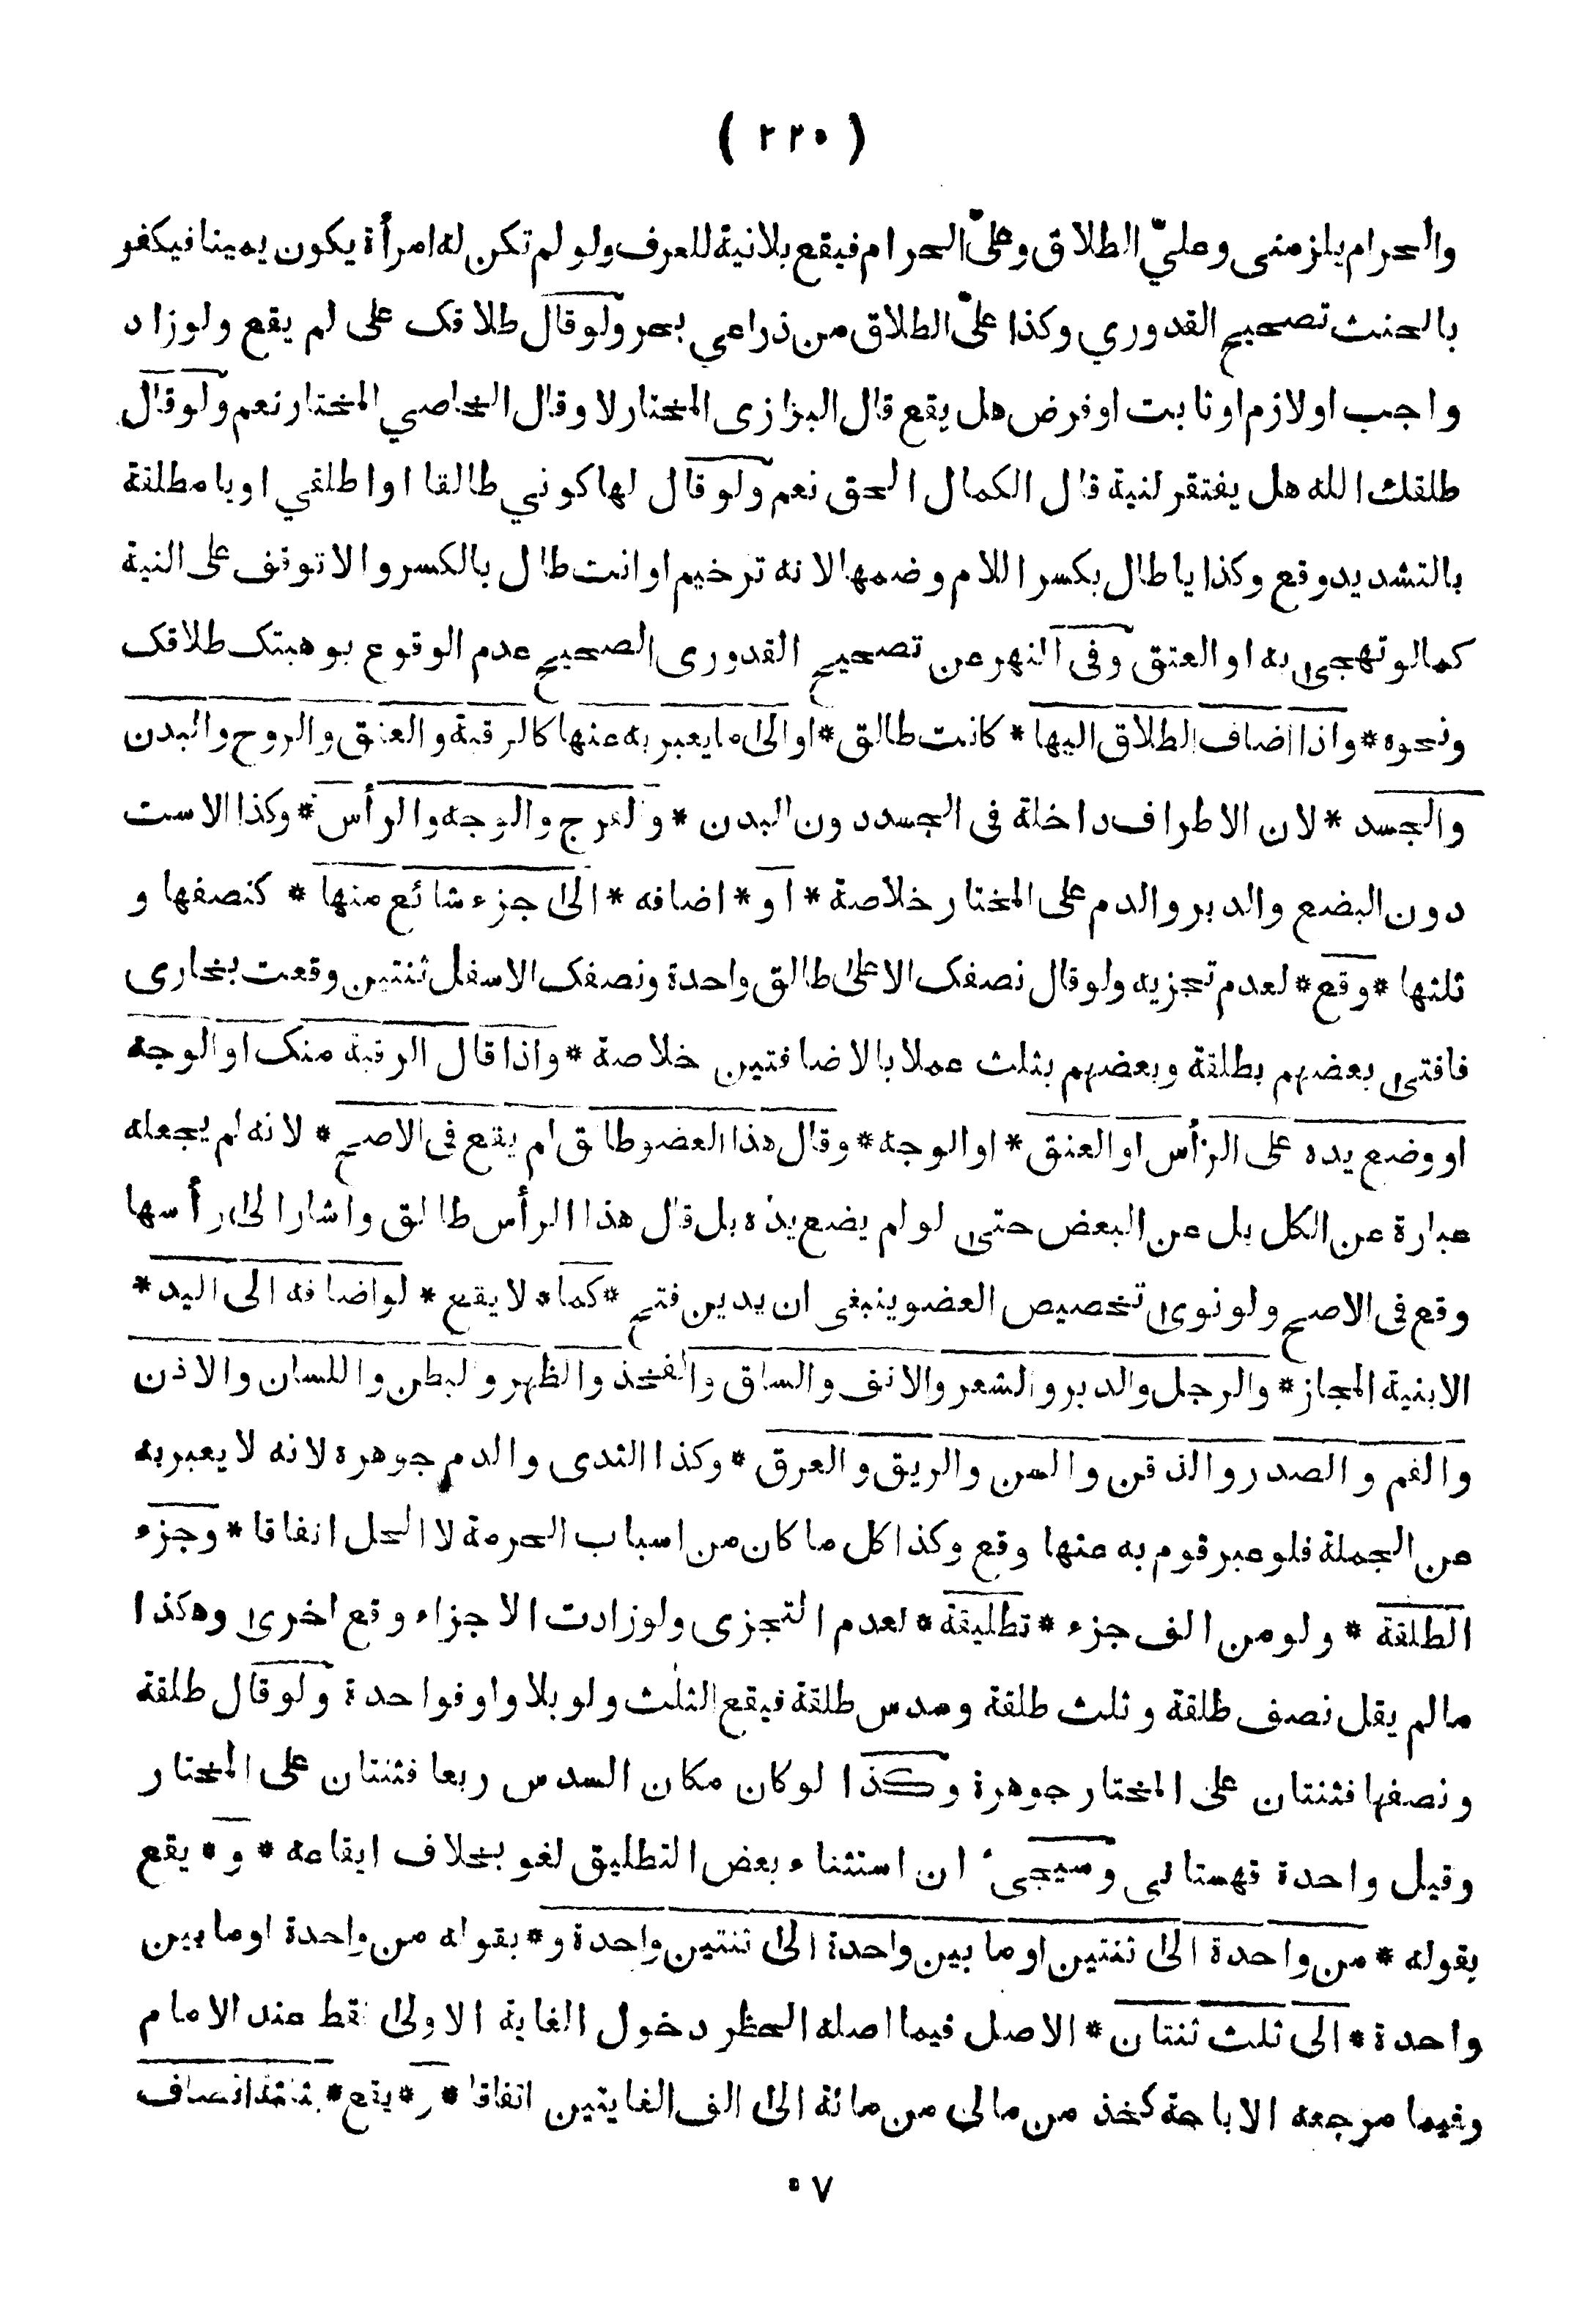 ( ٢٢٥ )
والحرام يلزمنى وعليّ الطلاق وعلىّ الحرام فيقع بلانية للعرف ولو لم تكن له امرأة يكون يمينا فيكفر
بالحنث تصحيح القدوري وكذا علىّ الطلاق من ذراعي بحر ولو قال طلاقك على لم يقع ولو زاد
واجب او لازم او ثابت او فرض هل يقع قال البزازى المختار لا وقال الخاصي المختار نعم ولو قال
طلقك الله هل يفتقر لنية قال الكمال الحق نعم ولو قال لها كوني طالقا او اطلقي او يا مطلقة
بالتشديد وقع وكذا يا طال بكسر اللام وضمها لانه ترخيم او انت طال بالكسر والا توقف على النية
كما لو تهجى به او العتق وفى النهر عن تصحيح القدورى الصحيح عدم الوقوع بوهبتك طلاقك
ونحوه * واذا اضاف الطلاق اليها * كانت طالق * او الى ما يعبر به عنها كالرقبة والعنق والروح والبدن
والجسد * لان الاطراف داخلة فى الجسد دون البدن * والفرج والوجه والرأس * وكذا الاست
دون البضع والدبر والدم على المختار خلاصة * او * اضافه * الى جزء شائع منها * كنصفها و
ثلثها * وقع * لعدم تجزيه ولو قال نصفك الاعلى طالق واحدة ونصفك الاسفل ثنتين وقعت ببخارى
فافتى بعضهم بطلقة وبعضهم بثلث عملا بالاضافتين خلاصة * واذا قال الرقبة منك او الوجه
او وضع يده على الرأس او العنق * او الوجه * وقال هذا العضو طالق لم يقع فى الاصح * لانه لم يجعله
عبارة عن الكل بل عن البعض حتى لو لم يضع يده بل قال هذا الرأس طالق واشار الى رأسها
وقع فى الاصح ولو نوى تخصيص العضو ينبغى ان يدين فتح * كما * لا يقع * لو اضافه الى اليد *
الا بنية المجاز * والرجل والدبر والشعر والانف والساق والفخذ والظهر والبطن واللسان والاذن
والفم والصدر والذقن والسن والريق والعرق * وكذا الثدى والدم جوهرة لانه لا يعبر به
عن الجملة فلو عبر قوم به عنها وقع وكذا كل ما كان من اسباب الحرمة لا الحل اتفاقا * وجزء
الطلقة * ولو من الف جزء * تطليقة * لعدم التجزى ولو زادت الاجزاء وقع اخرى وهكذا
ما لم يقل نصف طلقة وثلث طلقة وسدس طلقة فيقع الثلث ولو بلا واو فواحدة ولو قال طلقة
ونصفها فثنتان على المختار جوهرة وكذا لو كان مكان السدس ربعا فثنتان على المختار
وقيل واحدة قهستانى وسيجىء ان استثناء بعض التطليق لغو بخلاف ايقاعه * و * يقع
بقوله * من واحدة الى ثنتين او ما بين واحدة الى ثنتين واحدة و * بقوله من واحدة او ما بين
واحدة * الى ثلث ثنتان * الاصل فيما اصله الحظر دخول الغاية الاولى فقط عند الامام
وفيما مرجعه الاباحة كخذ من مالى من مائة الى الف الغايتين اتفاقا * و * يقع * بثلثة انصاف
٥٧